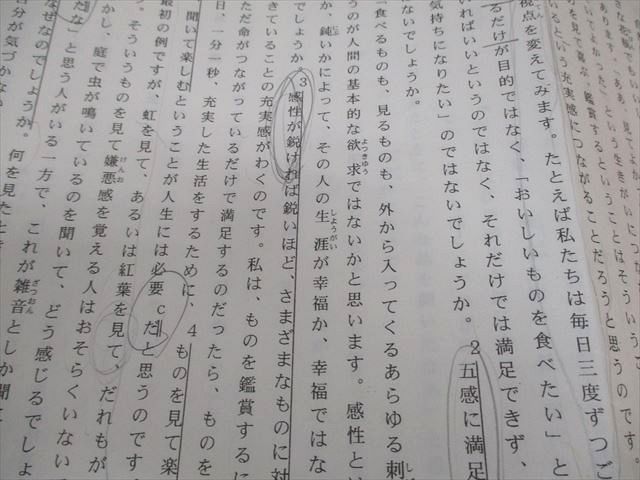 だろうと思うのです。
を見て喜ぶ、鑑賞するということはそういうこ
いるという充実感につながることだろうと思うのです。
視点を変えてみます。たとえば私たちは毎日三度ずつご
るだけが目的ではなく、「おいしいものを食べたい」と
いればいいというのではなく、それだけでは満足できず、
気持ちになりたい」のではないでしょうか。2五感に満足
ないでしょうか。
「食べるものも、見るものも、外から入ってくるあらゆる刺
うのが人間の基本的な欲求ではないかと思います。感性とい
か、鈍いかによって、その人の生涯が幸福か、幸福ではな
でしょうか。3感性が鋭ければ鋭いほど、さまざまなものに対
きていることの充実感がわくのです。私は、ものを鑑賞するに
ただ命がつながっているだけで満足するのだったら、ものを
日、一分一秒、充実した生活をするために、4ものを見て楽
聞いて楽しむということが人生には必要cだと思うのです
最初の例ですが、虹を見て、あるいは紅葉を見て、だれもが
。そういうものを見て嫌悪感を覚える人はおそらくいない
かし、庭で虫が鳴いているのを聞いて、どう感じるでしょ
だな」と思う人がいる一方で、これが雑音としか聞こ
なぜなのでしょうか。何を見たとき
自分が気づかな